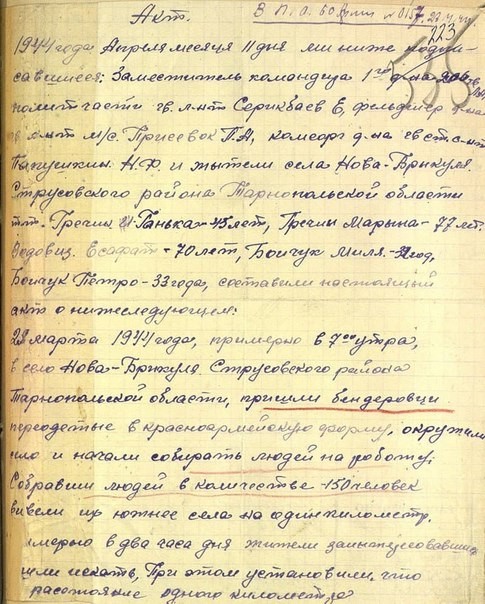 Акт.
В П.О. 60 Армии
223
1944 года Апреля месяца 11 дня мы ниже подпи-
савшиеся: Заместитель командира 1го
политчасти гв. л-нт Серикбаев Е, фельдшер
л-нт м/с. Присевок Г.А, комсорг д-на гв ст. с-нт
Н.Ф. и жители села Нова-Брикуля.
Струсовского района Тарнопольской области
т.т. Гречин Ганька-45 лет, Гречин Марына-77 лет.
Есафат-70 лет, Бойчук Миля-32 год,
Бойчук Петро-33 года, составили настоящий
акт о нижеследующем:
марта 1944 года, примерно в 7 00 утра,
в село Нова-Брикуля Струсовского района
Тарнопольской области, пришли бендеровцы
переодетые в красноармейскую форму, окружили
село и начали собирать людей на работу.
Собравши людей в количестве -150 человек
вывели их южнее села на один километр.
примерно в два часа дня жители заинтересовавшись
пошли искать, При этом установили, что
расстояние одного километра